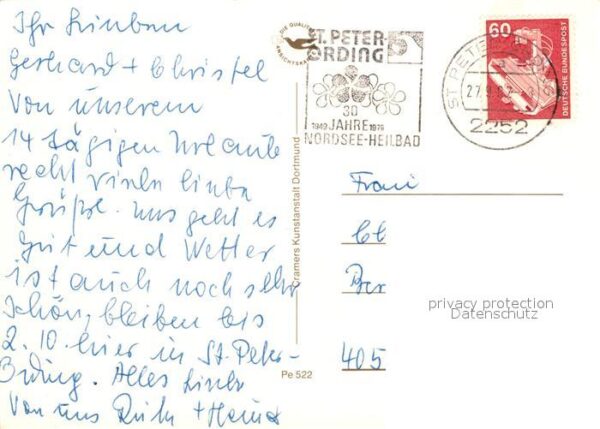 Ihr Lieben
Gerhard + Christel
Von unserem
14 tägigen Urlaub
recht viele liebe
Grüße. uns geht es
Gut und Wetter
ist auch noch sehr
schön, bleiben bis
2.10. hier in St. Peter-
Ording. Alles Liebe
Von uns Ruth + Heinz
ST. PETER
ORDING
30
1949 JAHRE 1979
NORDSEE-HEILBAD
ST PETER
2252
60
DEUTSCHE BUNDESPOST
Cramers Kunstanstalt Dortmund
Pe 522
Frau
Ber
405
privacy protection
Datenschutz